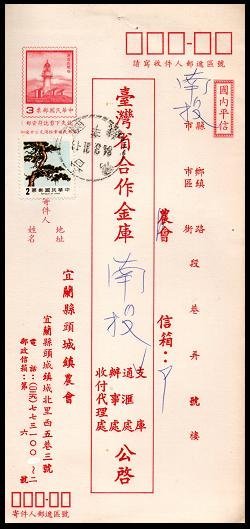 請寫收件人郵遞區號
國內平信
南投
縣 鄉鎮 路
市 市區 街 段 巷 弄 號 樓
農會 信箱：
臺灣省合作金庫
南投
支庫
通匯處
辦事處
收付代理處
公啓
中華民國郵票
3
中華民國郵票
2
寄件人
地址
姓名
宜蘭縣頭城鎮農會
宜蘭縣頭城鎮城北里西五巷三號
電話：(〇三九)七七三一〇〇～二
郵政信箱：第 六 號
寄件人郵遞區號